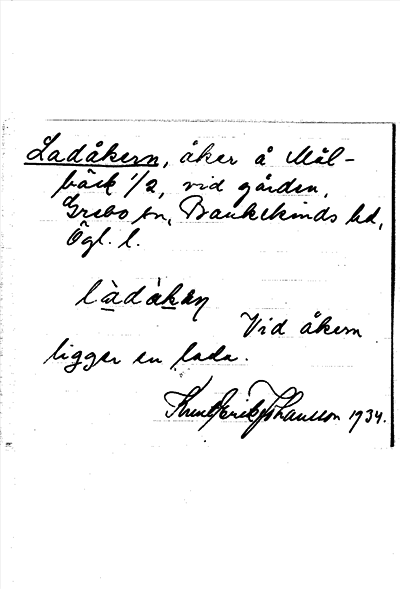 Ladåkern, åker å Mål-
bäck 1/2, vid gården,
Grebo sn, Bankekinds hd,
Ögl. l.
làdàkęn
Vid åkern
ligger en lada.
Knut Erik Johansson 1934.